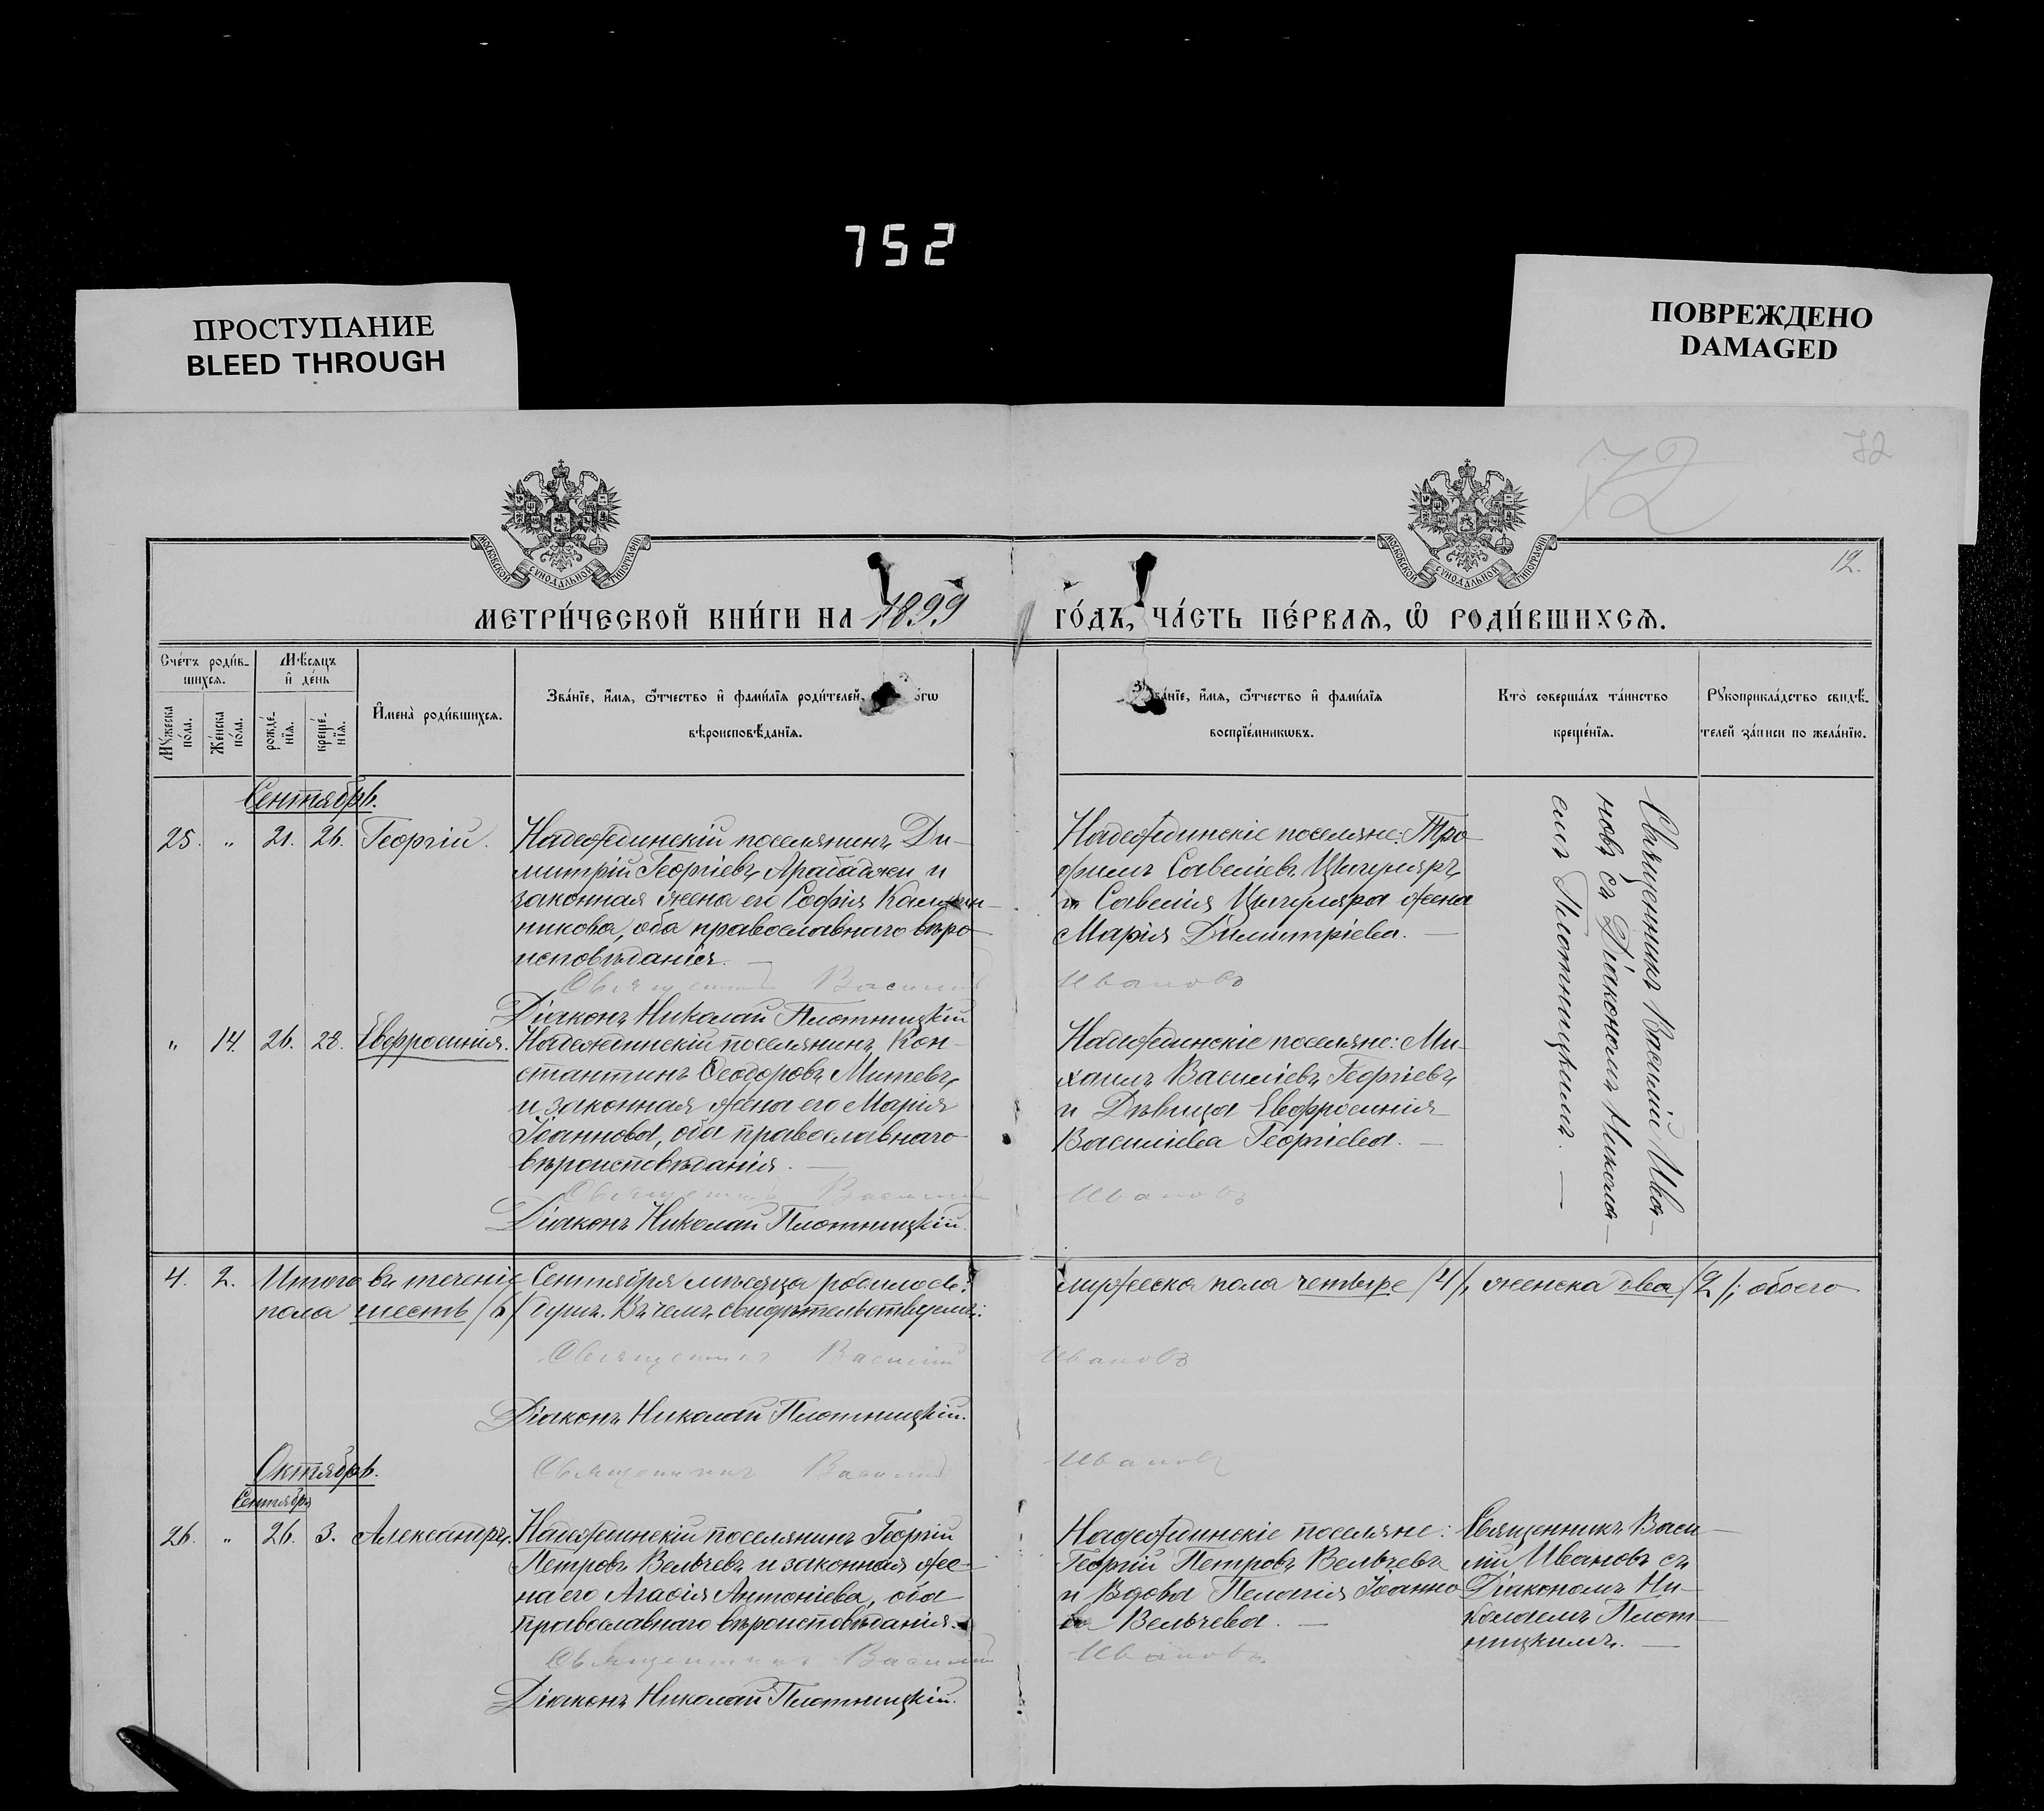 752
ПРОСТУПАНИЕ
BLEED THROUGH
ПОВРЕЖДЕНО
DAMAGED
72
72
12.
МОСКОВСКОЙ СУНОДАЛЬНОЙ ТИПОГРАФІИ
МОСКОВСКОЙ СУНОДАЛЬНОЙ ТИПОГРАФІИ
МЕТРИ́ЧЕСКОЙ КНИ́ГИ НА 1899 ГО́ДЪ, ЧА́СТЬ ПЕ́РВАѦ, Ѡ҆ РОДИ́ВШИХСѦ.
Сче́тъ роди́в-
шихсѧ.
Мѣ́сѧцъ
и҆ де́нь
Мꙋ́жеска
по́ла.
Же́нска
по́ла.
рожде́-
нїѧ.
креще́-
нїѧ.
И҆мена̀ роди́вшихсѧ.
Зва́нїе, и҆́мѧ, ѻ҆́тчество и҆ фами́лїѧ роди́телей,
вѣроисповѣ́данїѧ.
и҆́мѧ, ѻ҆́тчество и҆ фами́лїѧ
воспрїе́мникѡвъ.
Кто̀ соверша́лъ та́инство
креще́нїѧ.
Рꙋкоприкла́дство свидѣ́-
телей за́писи по жела́нїю.
Сентябрь.
25. " 21. 26. Георгій.
Надеждинскій поселянинъ Ди-
митрій Георгіевъ Арабаджи и
законная жена его Софія
никова, оба православнаго вѣро-
исповѣданія. —
Священникъ Василій Ивановъ
Діаконъ Николай Плотницкій
Надеждинскіе поселяне: Тро-
фимъ Савеліевъ Цигуляръ
и Савелія Цигуляра жена
Марія Димитріева. —
Священникъ Василій Ива-
новъ съ Діакономъ Никола-
емъ Плотницкимъ. —
" 14. 26. 28. Евфросинія.
Надеждинскій поселянинъ Кон-
стантинъ Ѳеодоровъ Митевъ
и законная жена его Марія
Іоаннова, оба православнаго
вѣроисповѣданія. —
Священникъ Василій Ивановъ
Діаконъ Николай Плотницкій.
Надеждинскіе поселяне: Ми-
хаилъ Василіевъ Георгіевъ
и Дѣвица Евфросинія
Василіева Георгіева. —
4. 2. Итого въ теченіе Сентября мѣсяца родилось: мужеска пола четыре /4/, женска два /2/; обоего
пола шесть /6/ душъ. Въ чемъ свидѣтельствуемъ:
Священникъ Василій Ивановъ
Діаконъ Николай Плотницкій.
Октябрь.
Священникъ Василій Ивановъ
Сентября
26. " 26. 3. Александръ.
Надеждинскій поселянинъ Георгій
Петровъ Вельчевъ и законная же-
на его Агаѳія Антоніева, оба
православнаго вѣроисповѣданія.
Священникъ Василій Ивановъ.
Діаконъ Николай Плотницкій.
Надеждинскіе поселяне:
Георгій Петровъ Вельчевъ
и Вдова Пелагія Іоанно-
ва Вельчева. —
Священникъ Васи-
лій Ивановъ съ
Діакономъ Ни-
колаемъ Плот-
ницкимъ. —